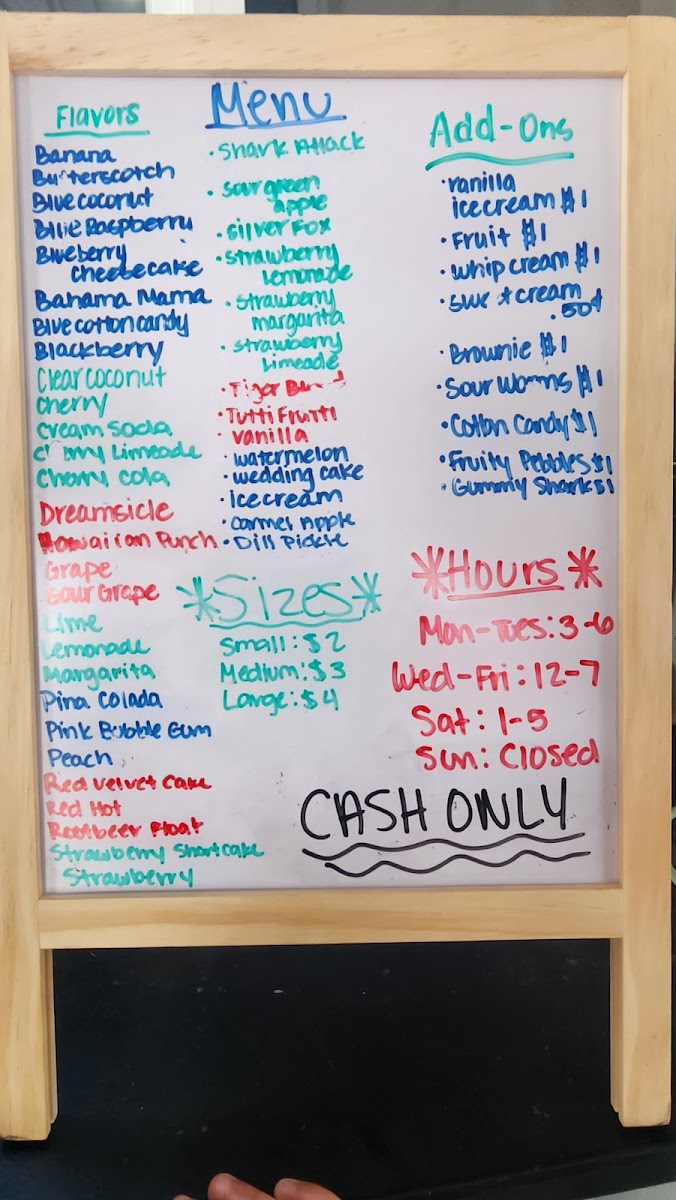 Menu
Flavors
Banana
Butterscotch
Blue coconut
Blue Raspberry
Blueberry
cheesecake
Bahama Mama
Blue cotton candy
Blackberry
Clear coconut
Cherry
Cream Soda
Cherry Limeade
Cherry Cola
Dreamsicle
Hawaiian Punch
Grape
Sour Grape
Lime
Lemonade
Margarita
Pina Colada
Pink Bubble Gum
Peach
Red Velvet Cake
Red Hot
Rootbeer Float
Strawberry Shortcake
Strawberry
• Shark Attack
• sour green
apple
• Silver Fox
• strawberry
lemonade
• strawberry
margarita
• strawberry
limeade
• Tiger
• Tutti Frutti
• vanilla
• watermelon
• wedding cake
• ice cream
• Carmel Apple
• Dill Pickle
*Sizes*
Small: $2
Medium: $3
Large: $4
Add-Ons
• vanilla
ice cream $1
• Fruit $1
• whip cream $1
• sweet cream
.50¢
• Brownie $1
• Sour Worms $1
• Cotton Candy $1
• Fruity Pebbles $1
• Gummy Sharks $1
*Hours*
Mon-Tues: 3-6
Wed-Fri: 12-7
Sat: 1-5
Sun: Closed
CASH ONLY